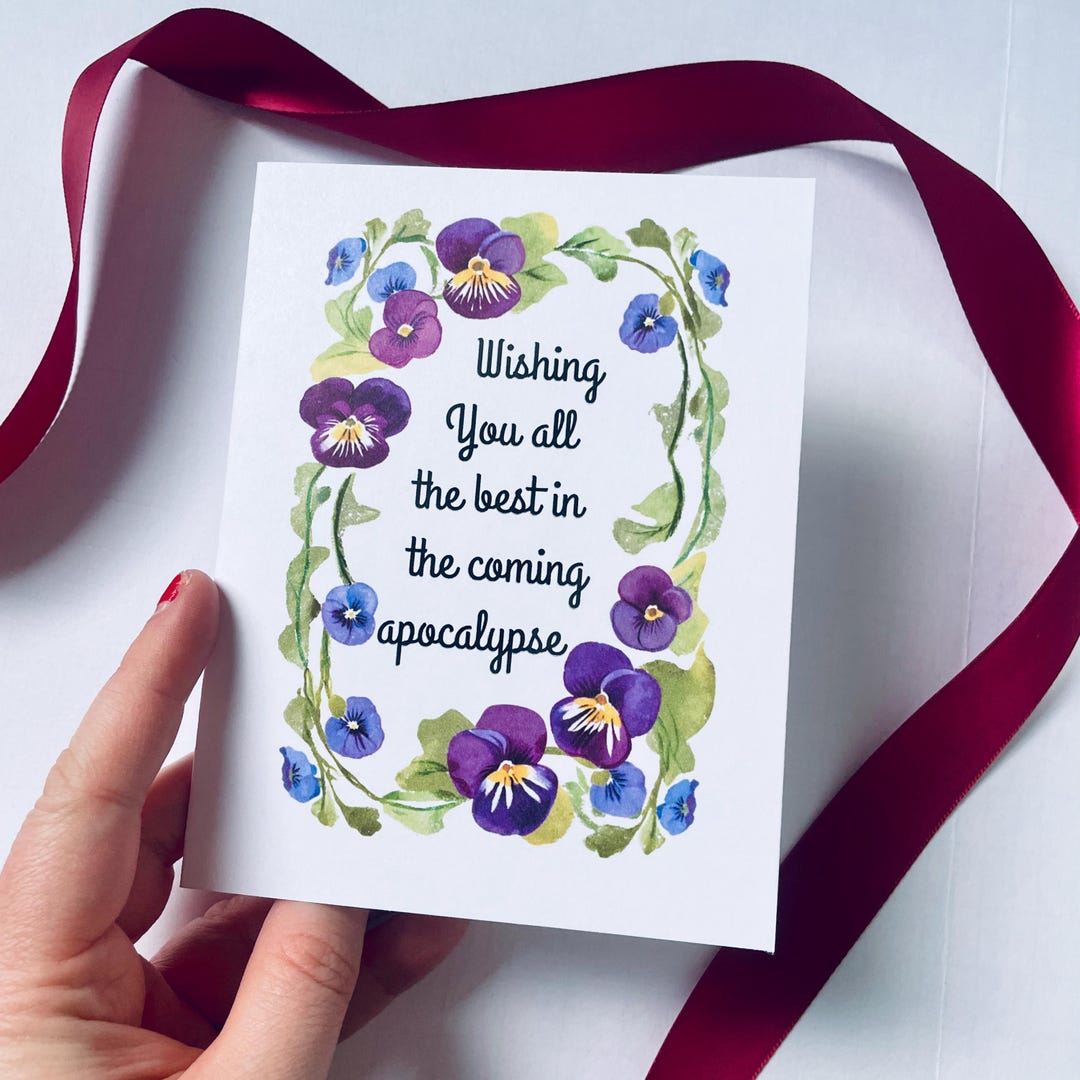 Wishing
You all
the best in
the coming
apocalypse